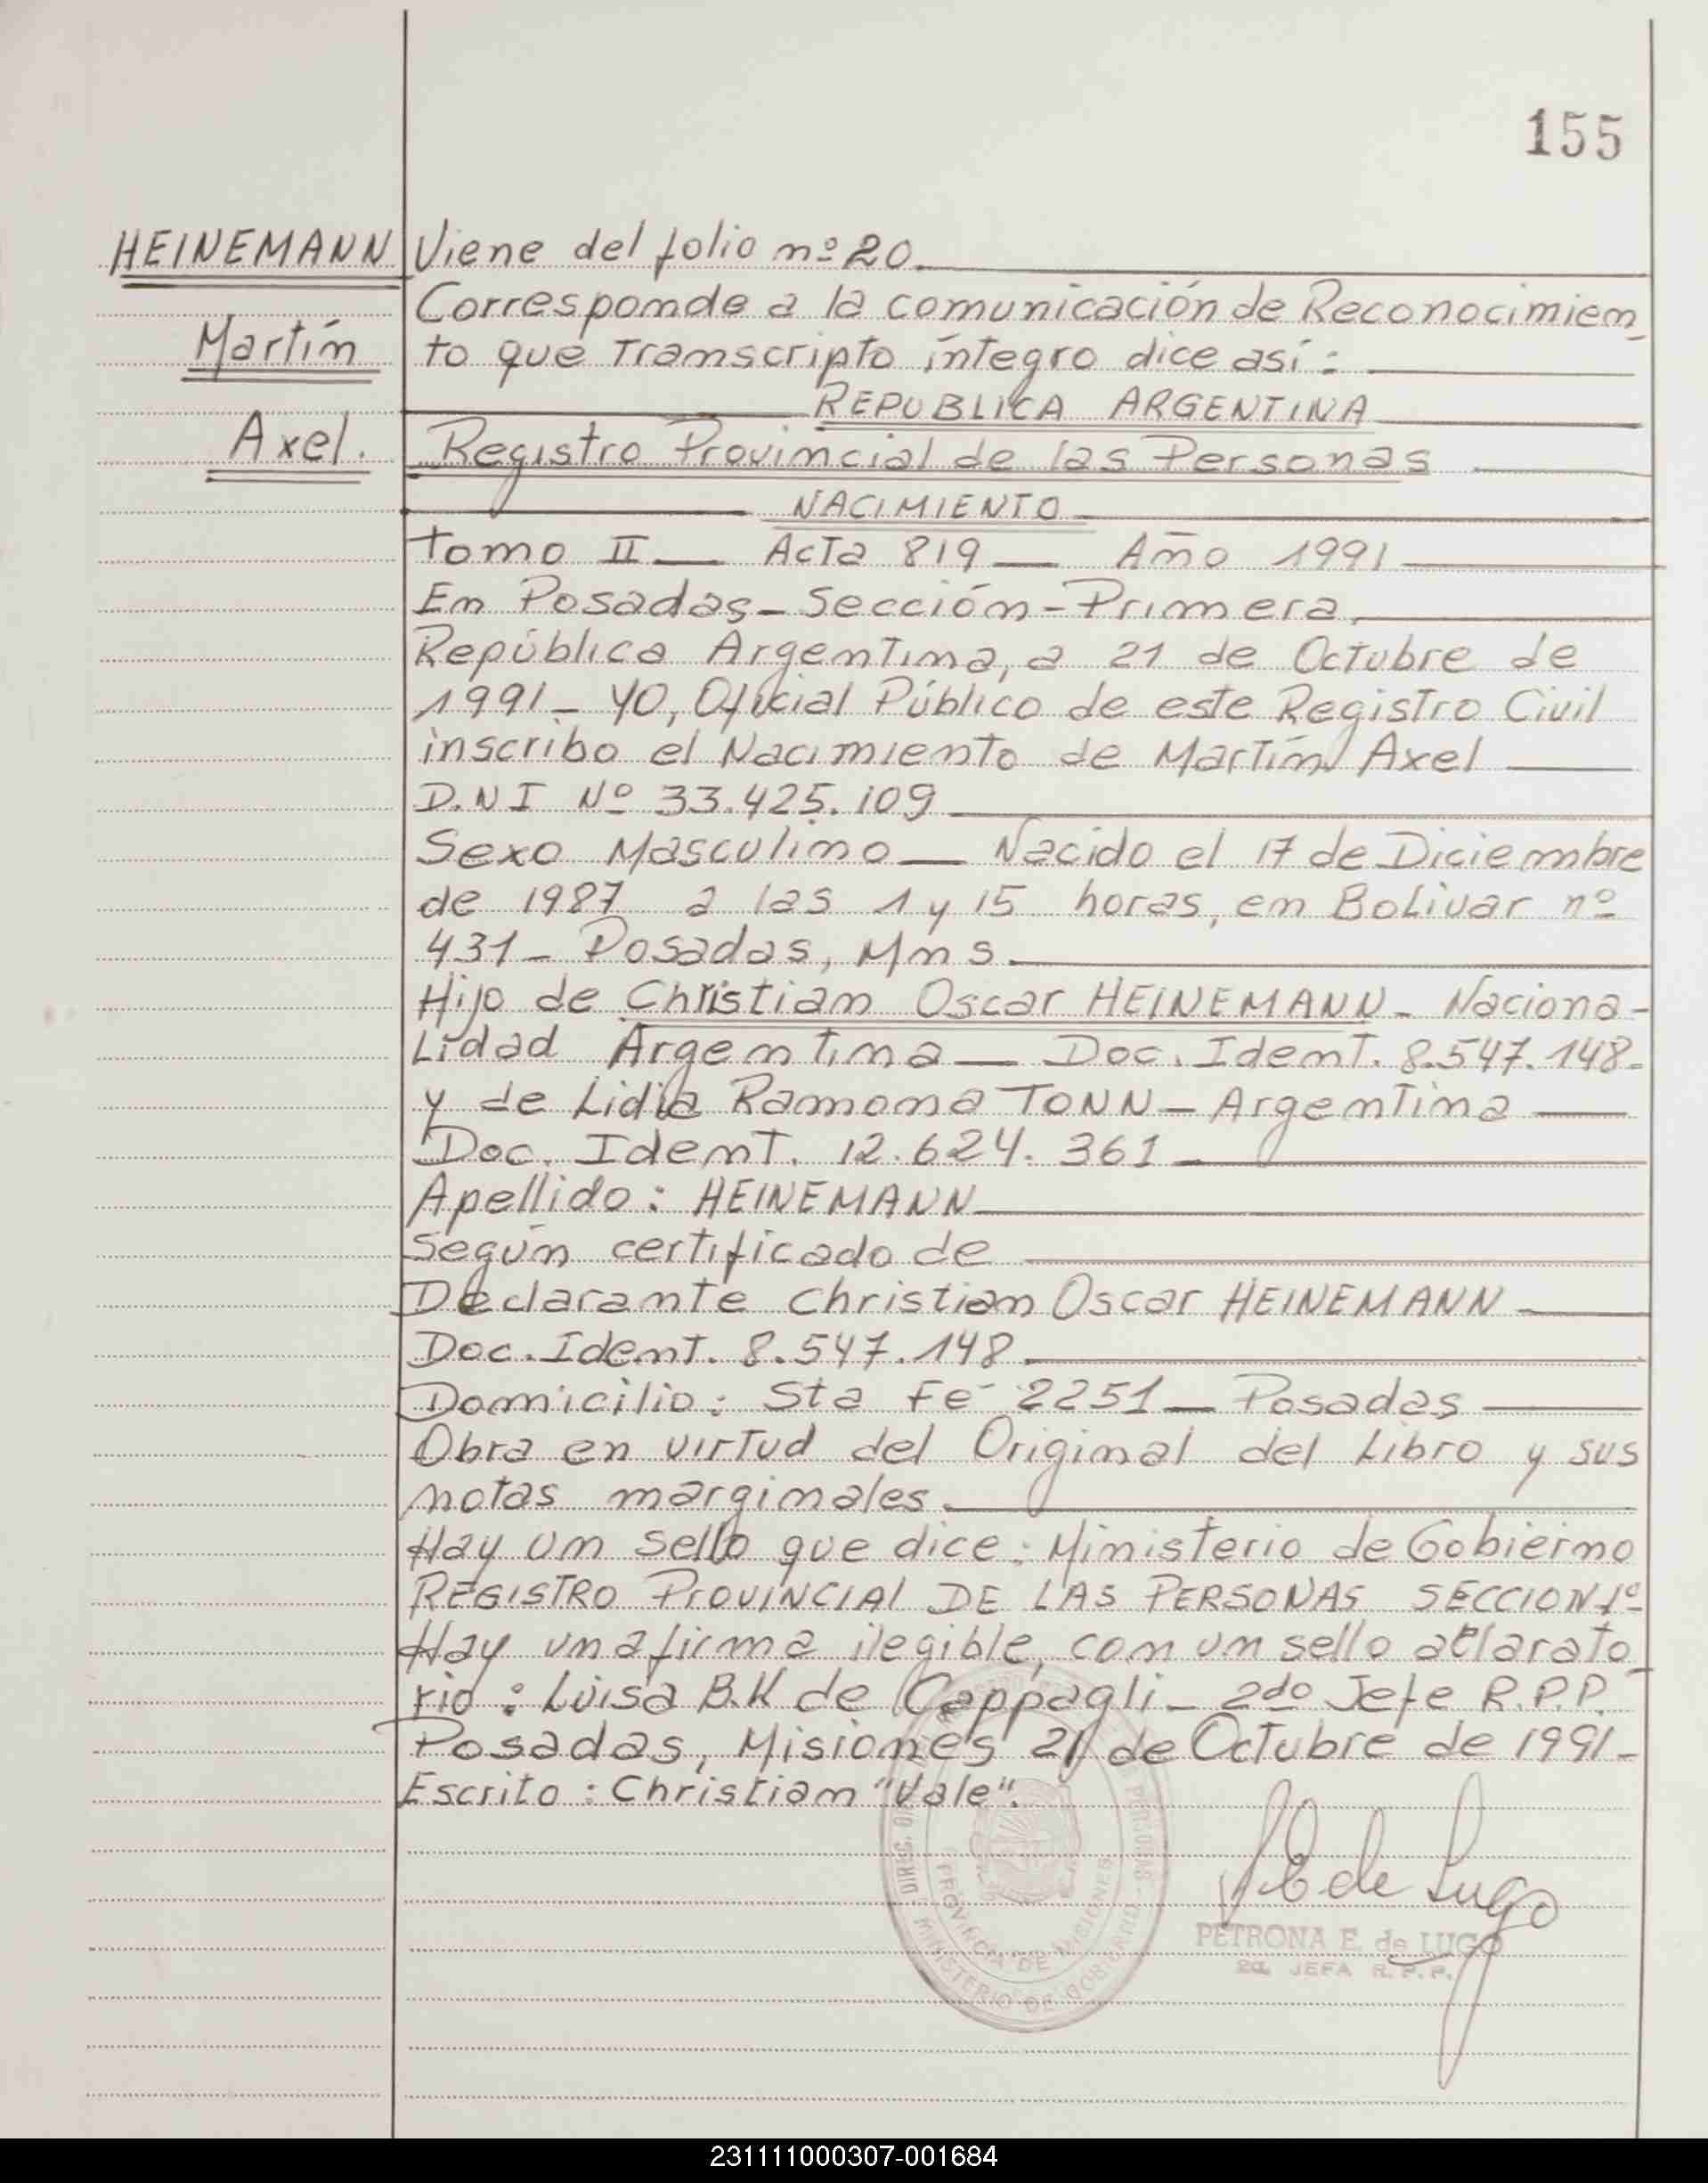 155
HEINEMANN
Martín
Axel.
Viene del folio nº 20.
Corresponde a la comunicación de Reconocimien_
to que transcripto íntegro dice así:
REPUBLICA ARGENTINA
Registro Provincial de las Personas
NACIMIENTO
tomo II — Acta 819 — Año 1991
En Posadas - Sección - Primera,
República Argentina, a 21 de Octubre de
1991 - YO, Oficial Público de este Registro Civil
inscribo el Nacimiento de Martín Axel
D.N I Nº 33.425.109
Sexo Masculino — Nacido el 17 de Diciembre
de 1987 a las 1 y 15 horas, en Bolivar nº
431 - Posadas, Mns.
Hijo de Christian Oscar HEINEMANN - Naciona-
Lidad Argentina — Doc. Ident. 8.547.148-
y de Lidia Ramona TONN - Argentina
Doc. Ident. 12.624.361
Apellido: HEINEMANN
Según certificado de
Declarante Christian Oscar HEINEMANN
Doc. Ident. 8.547.148
Domicilio: Sta Fé 2251 — Posadas
Obra en virtud del Original del Libro y sus
notas marginales.
Hay un sello que dice: Ministerio de Gobierno
REGISTRO PROVINCIAL DE LAS PERSONAS SECCION 1º
Hay una firma ilegible, con un sello aclarato_
rio: Luisa B.K de Cappagli - 2do Jefe R.P.P.
Posadas, Misiones 21 de Octubre de 1991-
Escrito: Christian "Vale".
PROVINCIA DE MISIONES
MINISTERIO DE GOBIERNO
de Lugo
PETRONA E. de LUGO
2da JEFA R.P.P.
231111000307-001684